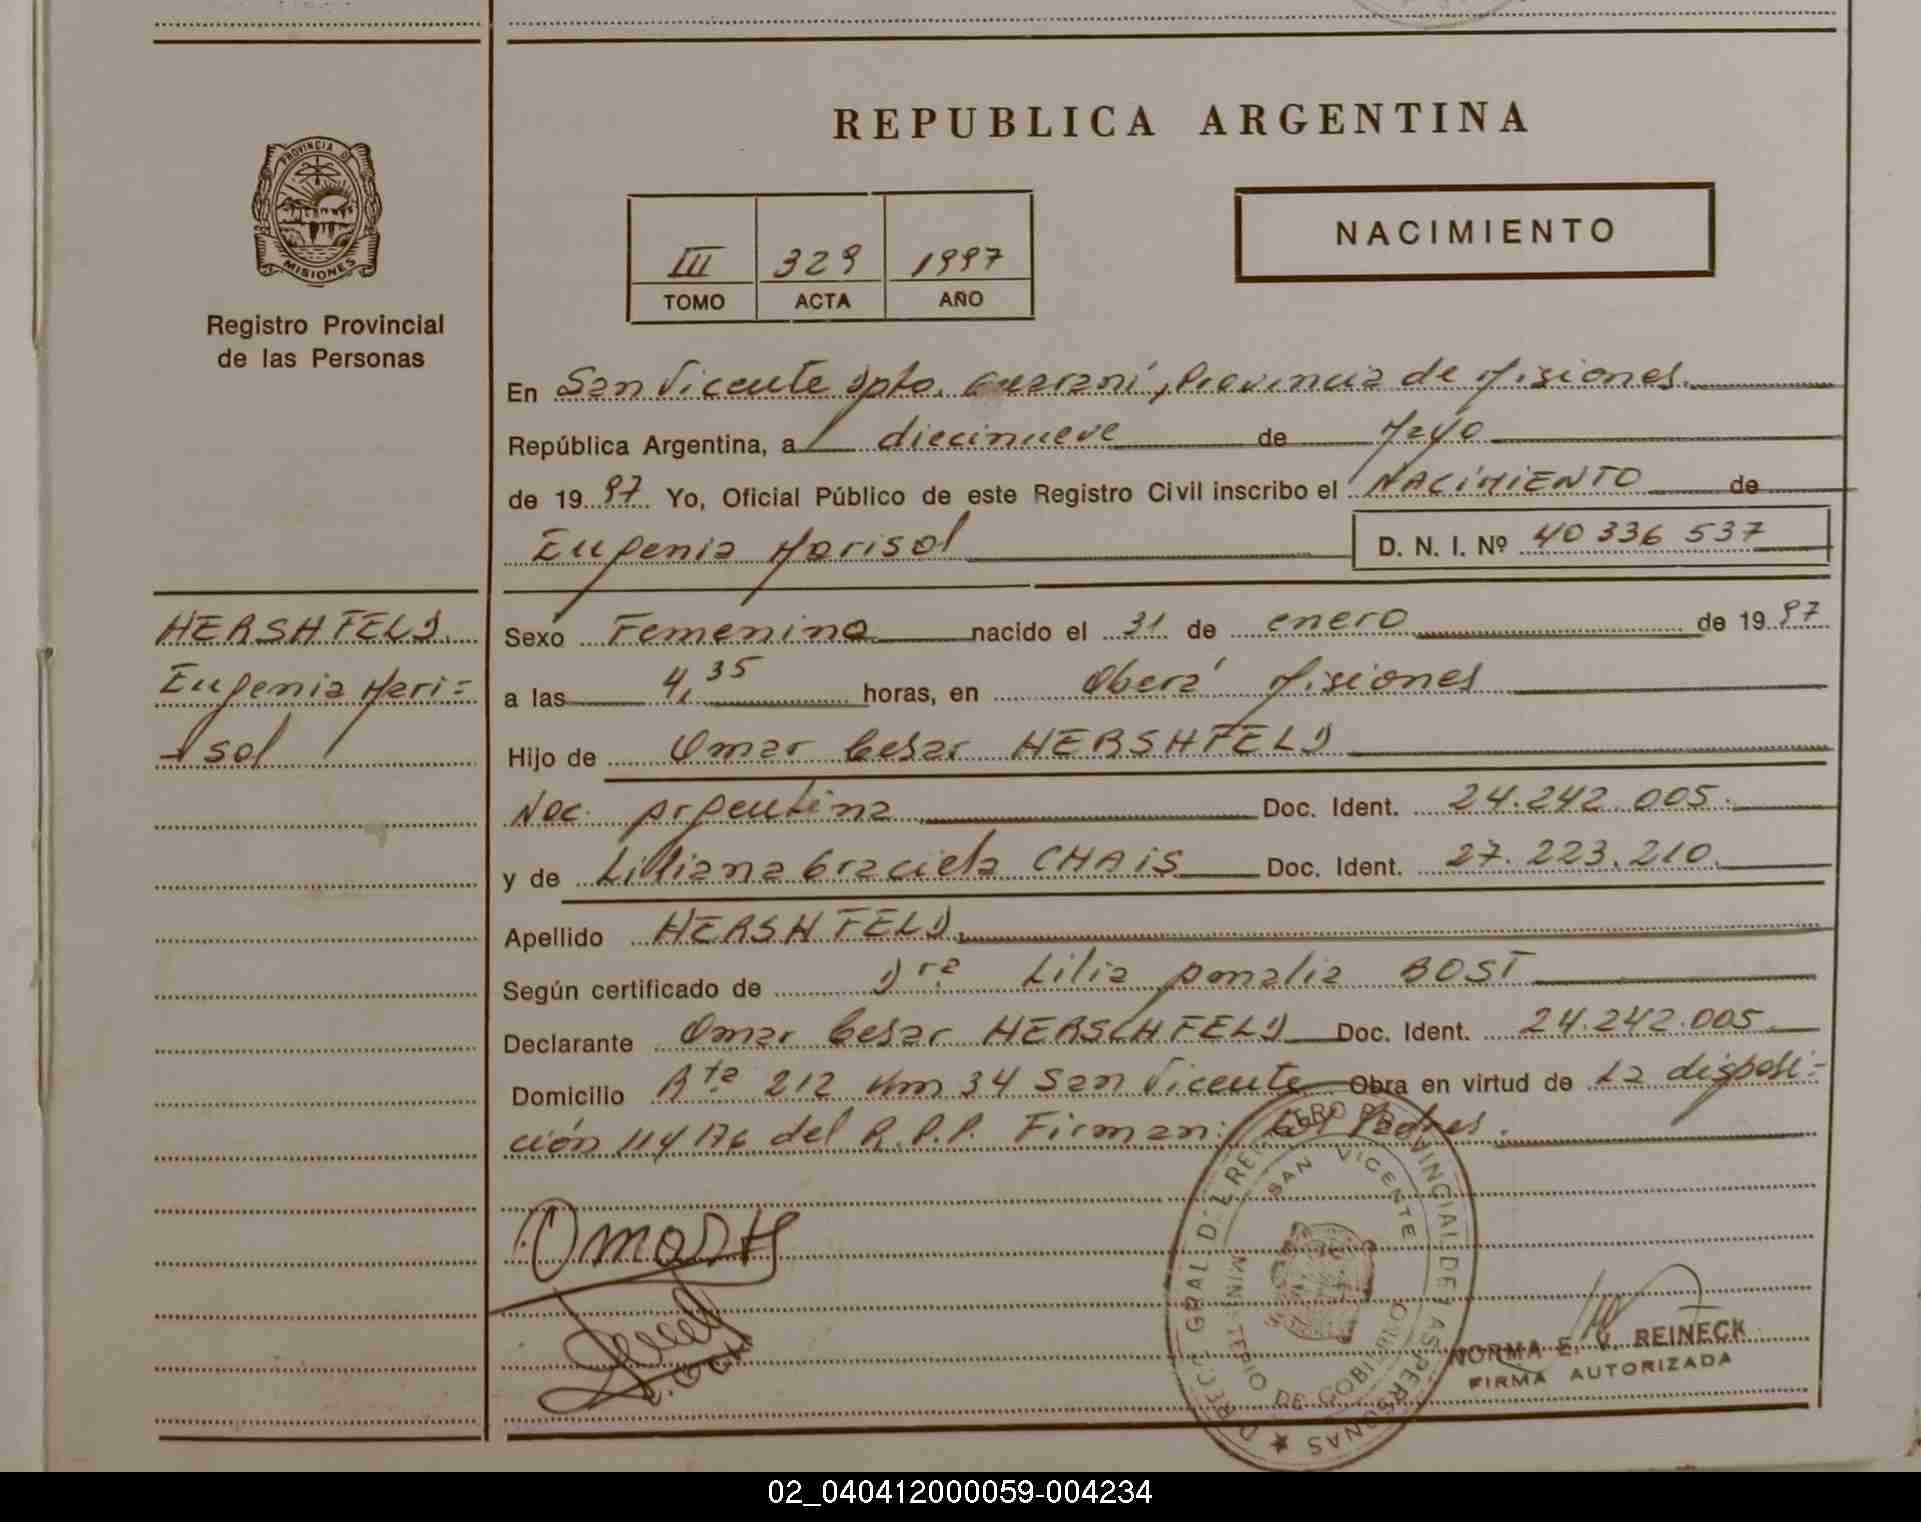 REPUBLICA ARGENTINA
PROVINCIA DE
MISIONES
Registro Provincial
de las Personas
III 329 1997
TOMO ACTA AÑO
NACIMIENTO
En San Vicente Dpto. Guaraní, Provincia de Misiones.
República Argentina, a diecinueve de Mayo
de 19 97 Yo, Oficial Público de este Registro Civil inscribo el NACIMIENTO de
Eugenia Marisol D. N. I. Nº 40 336 537
HERSHFELD.
Eugenia Mari=
sol
Sexo Femenino nacido el 31 de enero de 19 97
a las 4,35 horas, en Oberá Misiones
Hijo de Omar Cesar HERSHFELD
Nac. Argentina Doc. Ident. 24.242.005.
y de Liliana Graciela CHAIS Doc. Ident. 27.223.210.
Apellido HERSHFELD.
Según certificado de Dra Lilia Amalia BOST
Declarante Omar Cesar HERSCHFELD Doc. Ident. 24.242.005.
Domicilio Rta 212 Km 34 San Vicente Obra en virtud de La disposi=
ción 114/76 del R.P.P. Firman: Los Padres.
Omar H
SAN VICENTE
NORMA E. V. REINECK
FIRMA AUTORIZADA
02_040412000059-004234